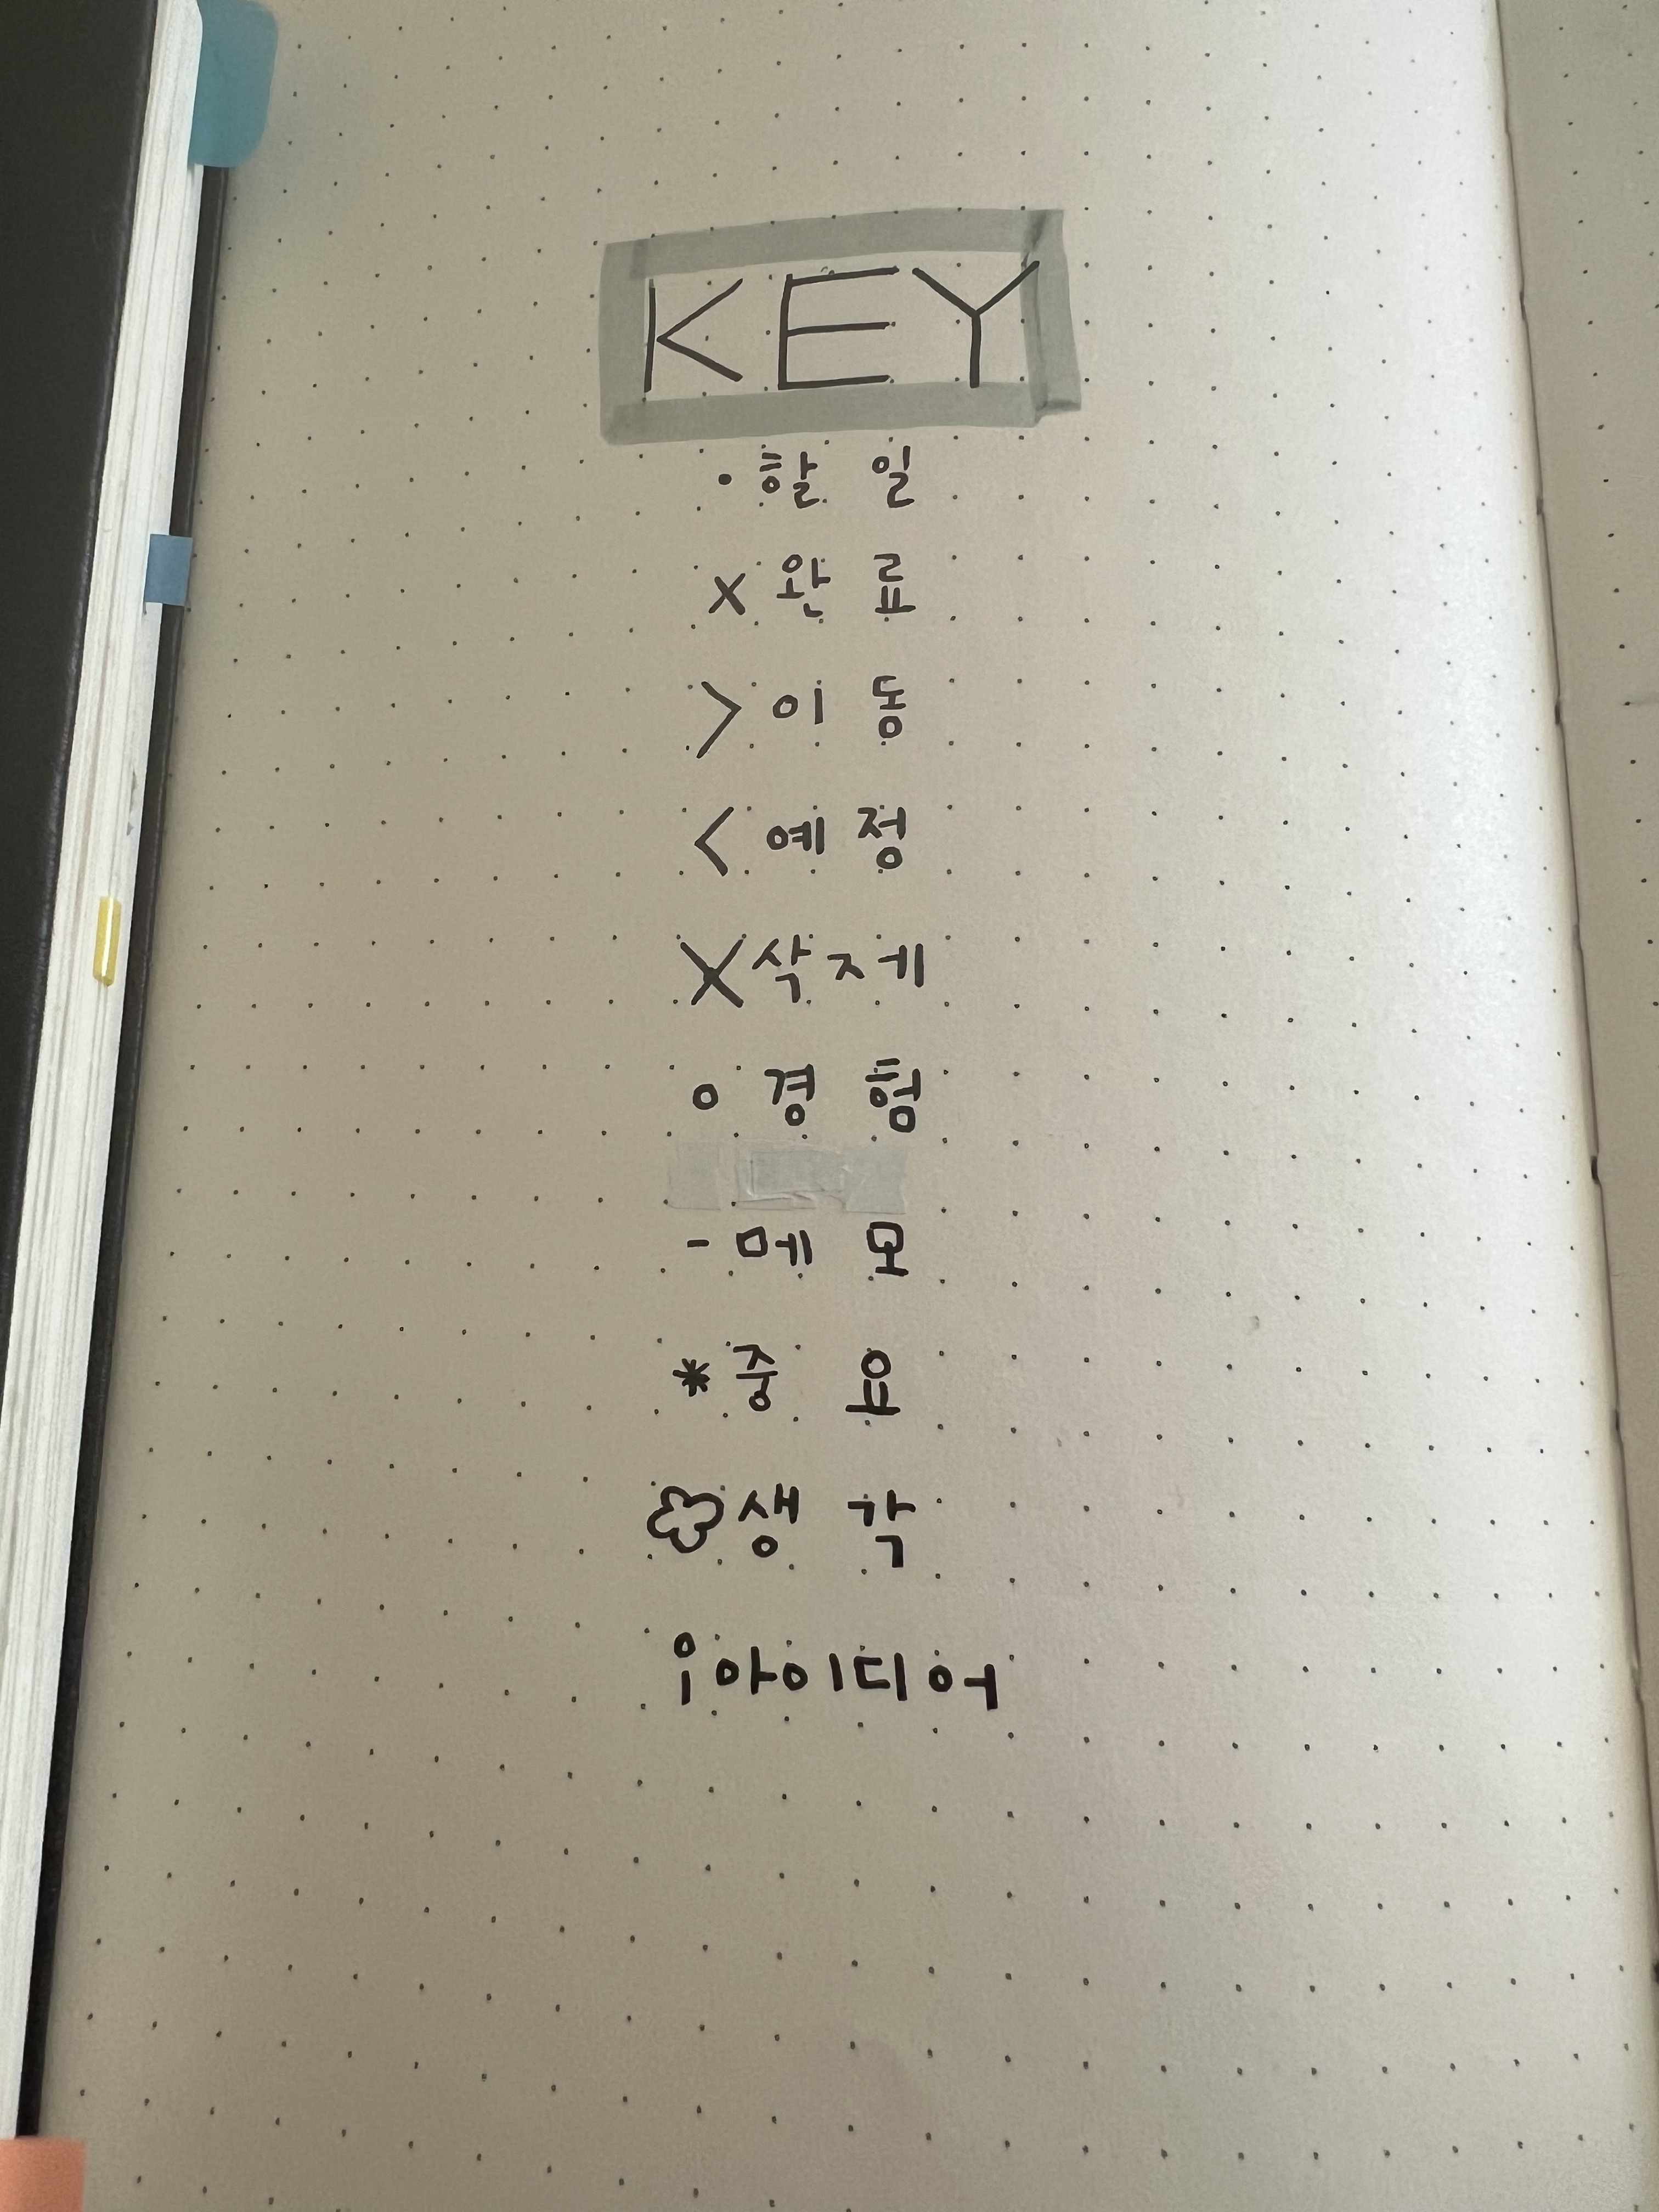 KEY
• 할 일
x 완료
> 이동
< 예정
X 삭제
o 경험
- 메모
* 중요
생각
아이디어